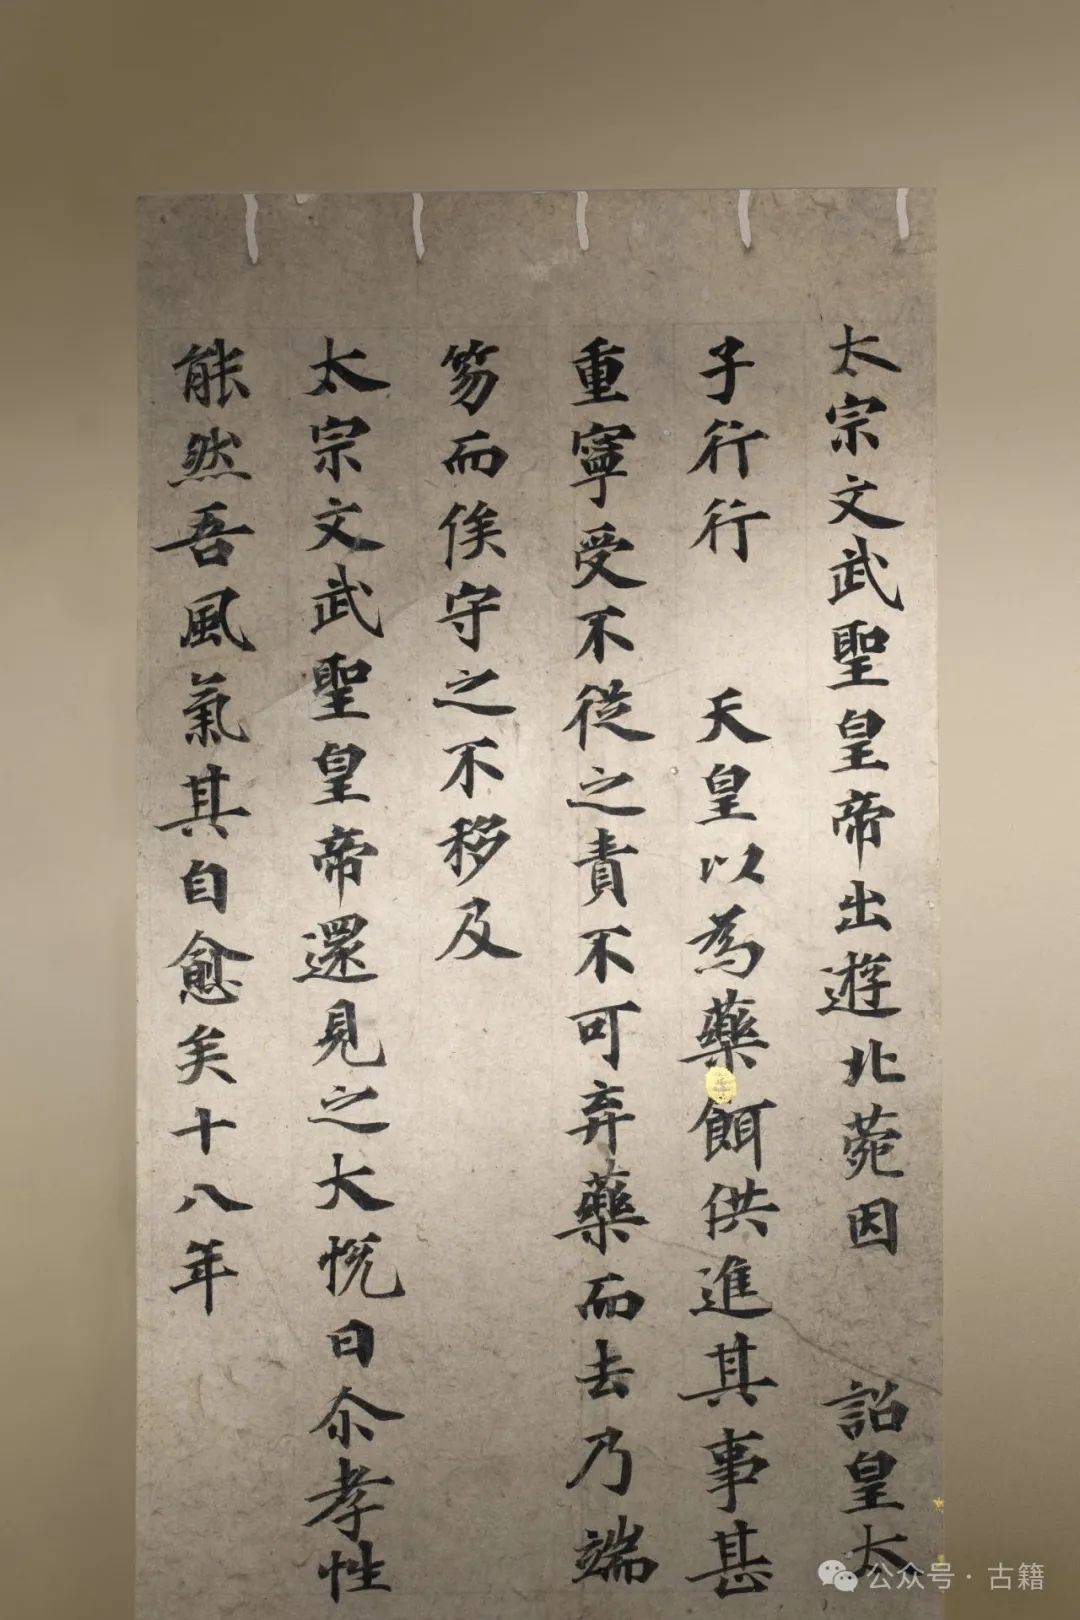 太宗文武聖皇帝出遊北菀因 詔皇太
子行行 天皇以為藥餌供進其事甚
重寧受不從之責不可弃藥而去乃端
笏而俟守之不移及
太宗文武聖皇帝還見之大悦曰尒孝性
能然吾風氣其自愈矣十八年
公众号·古籍